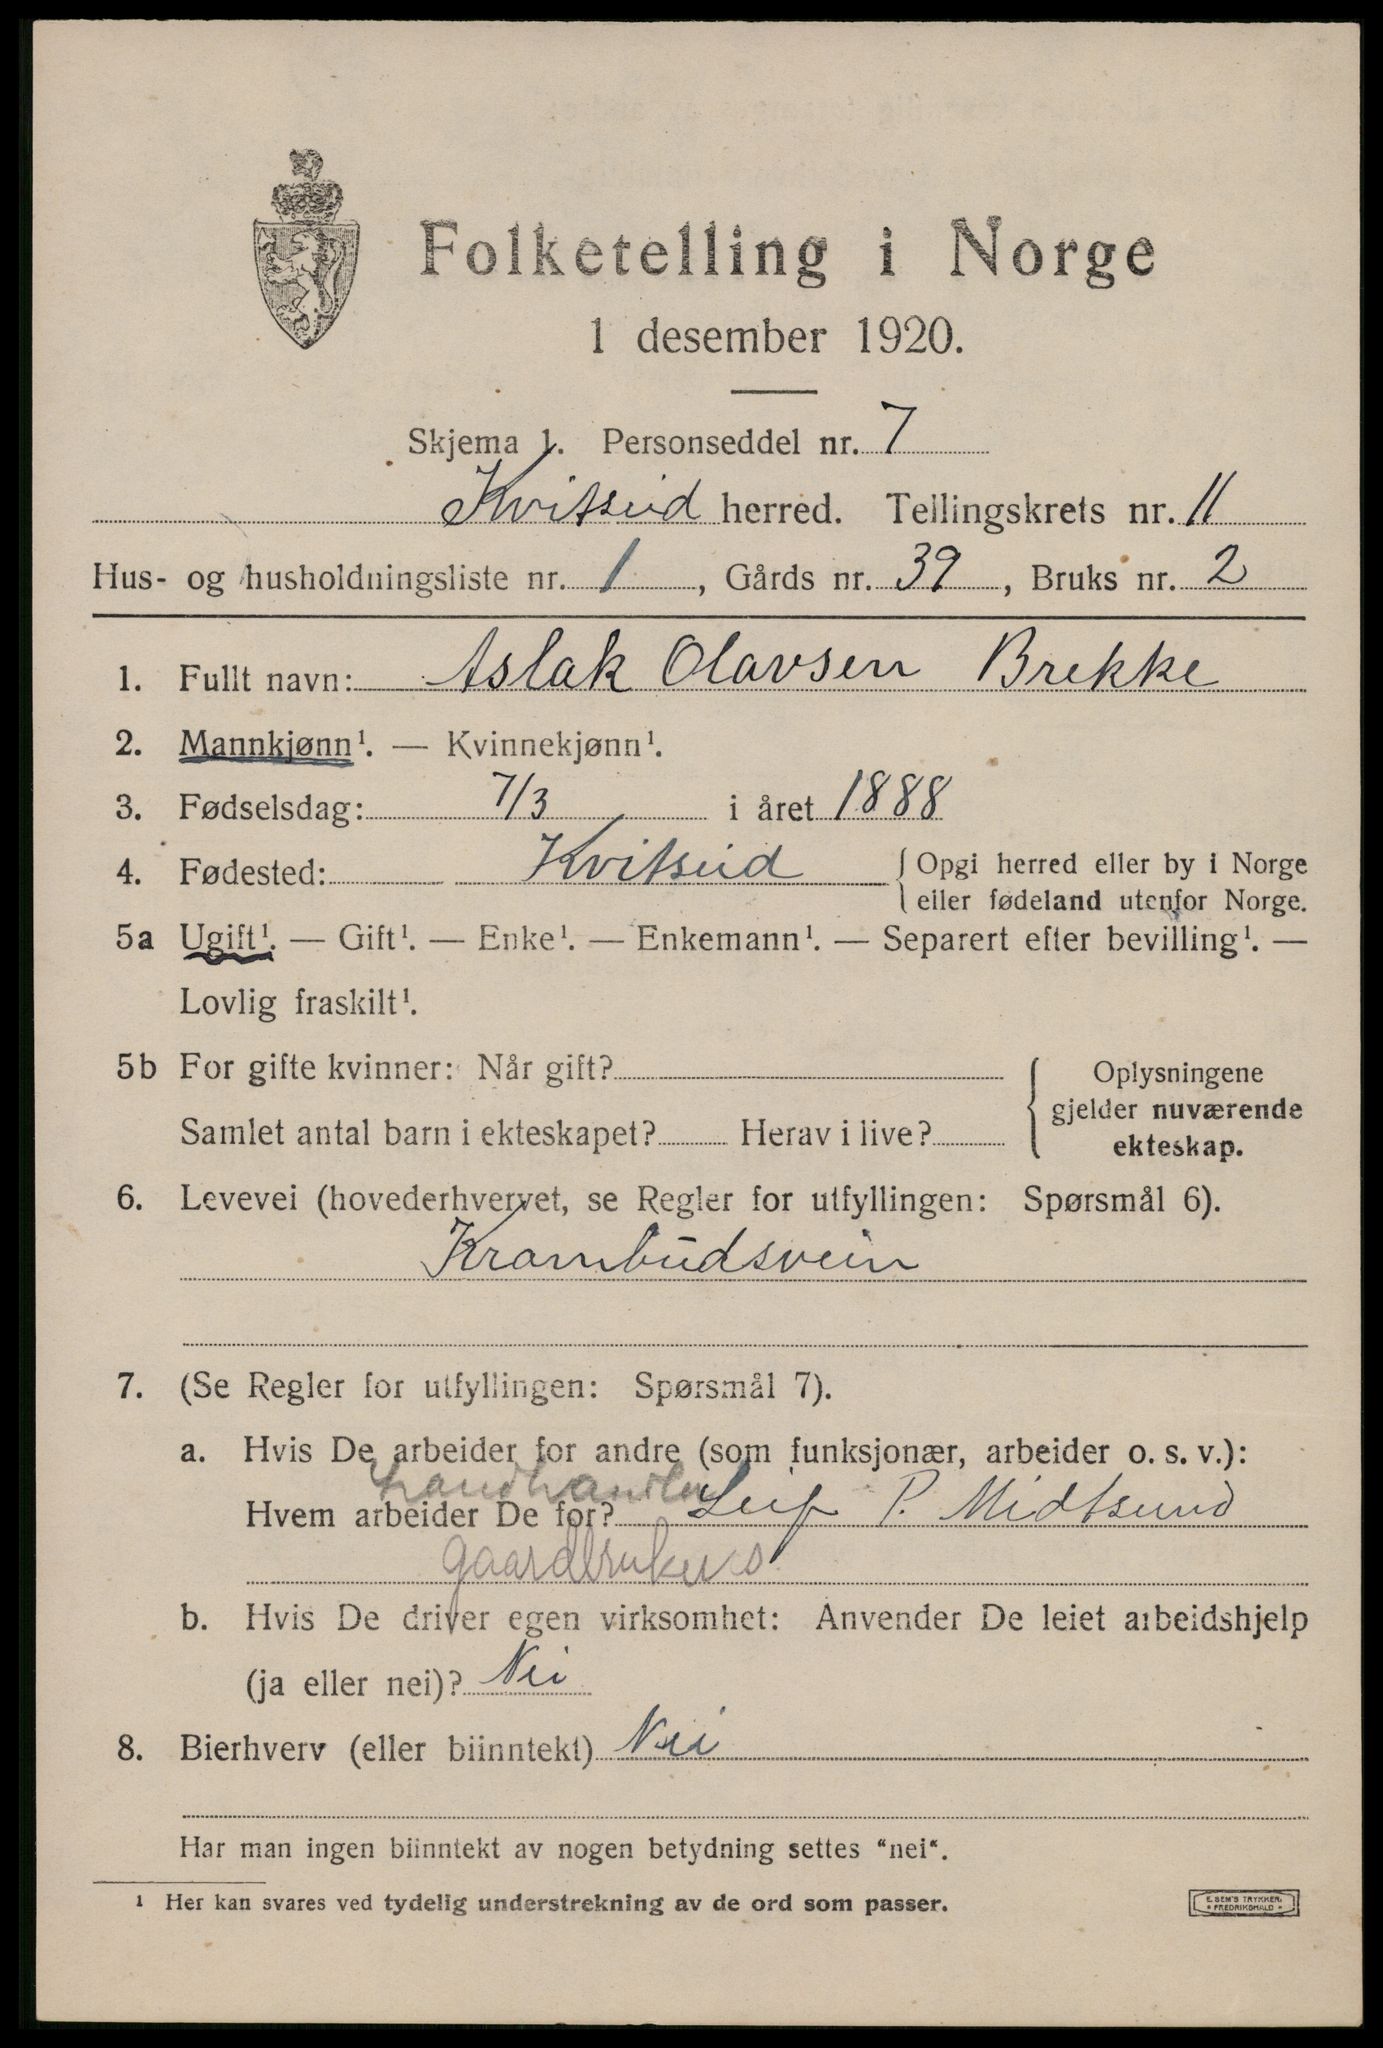 Folketelling i Norge
1 desember 1920.
Skjema 1. Personseddel nr. 7
Kvitseid herred. Tellingskrets nr. 11
Hus- og husholdningsliste nr. 1, Gårds nr. 39, Bruks nr. 2
1. Fullt navn: Aslak Olavsen Brekke
2. Mannkjønn¹. — Kvinnekjønn¹.
3. Fødselsdag: 7/3 i året 1888
4. Fødested: Kvitseid { Opgi herred eller by i Norge
eller fødeland utenfor Norge.
5a Ugift¹. — Gift¹. — Enke¹. — Enkemann¹. — Separert efter bevilling¹. —
Lovlig fraskilt¹.
5b For gifte kvinner: Når gift?
Samlet antal barn i ekteskapet? Herav i live?
{ Oplysningene
gjelder nuværende
ekteskap.
6. Levevei (hovederhvervet, se Regler for utfyllingen: Spørsmål 6).
Krambudsvein
7. (Se Regler for utfyllingen: Spørsmål 7).
a. Hvis De arbeider for andre (som funksjonær, arbeider o. s. v.):
Landhandler
Hvem arbeider De for? Leif P. Midtsund
gaardbruker
b. Hvis De driver egen virksomhet: Anvender De leiet arbeidshjelp
(ja eller nei)? Nei
8. Bierhverv (eller biinntekt) Nei
Har man ingen biinntekt av nogen betydning settes "nei".
¹ Her kan svares ved tydelig understrekning av de ord som passer.
E. SEM'S TRYKKER.
FREDRIKSHALD